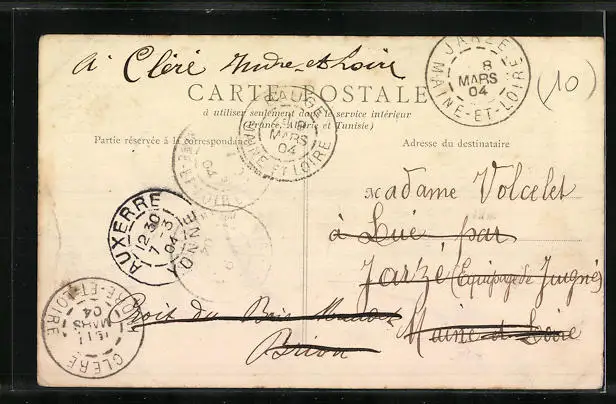 à Cléré Indre-et-Loire
JARZÉ
8
MARS
04
MAINE-ET-LOIRE
(10)
CARTE POSTALE
à utiliser seulement dans le service intérieur
(France, Algérie et Tunisie)
Partie réservée à la correspondance
Adresse du destinataire
BAUGÉ
MARS
04
MAINE-ET-LOIRE
AUXERRE
12 30
7 - 3
04
YONNE
Madame Volcelet
à Lué par
Jarzé (Equipage de Juigné)
Maine et Loire
Bois
Brion
CLERE
11
MARS
04
INDRE-ET-LOIRE